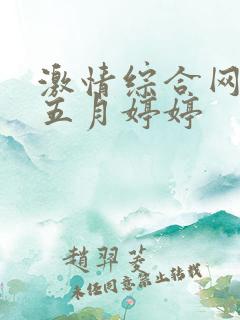 激情综合网
五月婷婷
趙羿菱
未经同意禁止转载